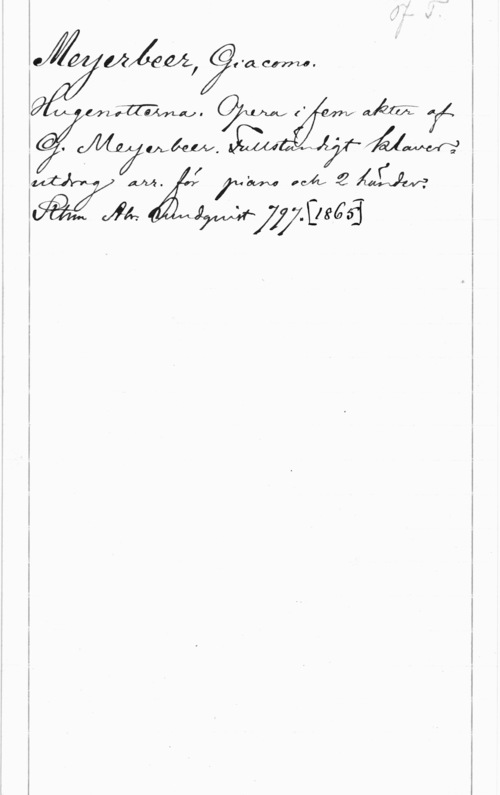 of T.
Meyerbeer, Giacomo.
Hugenotterna. Opera i fem akter af
G. Meyerbeer. Fullständigt klaver=
utdrag arr. för piano och 2 händer.
Sthm Abr. Lundquist 797. [1865]